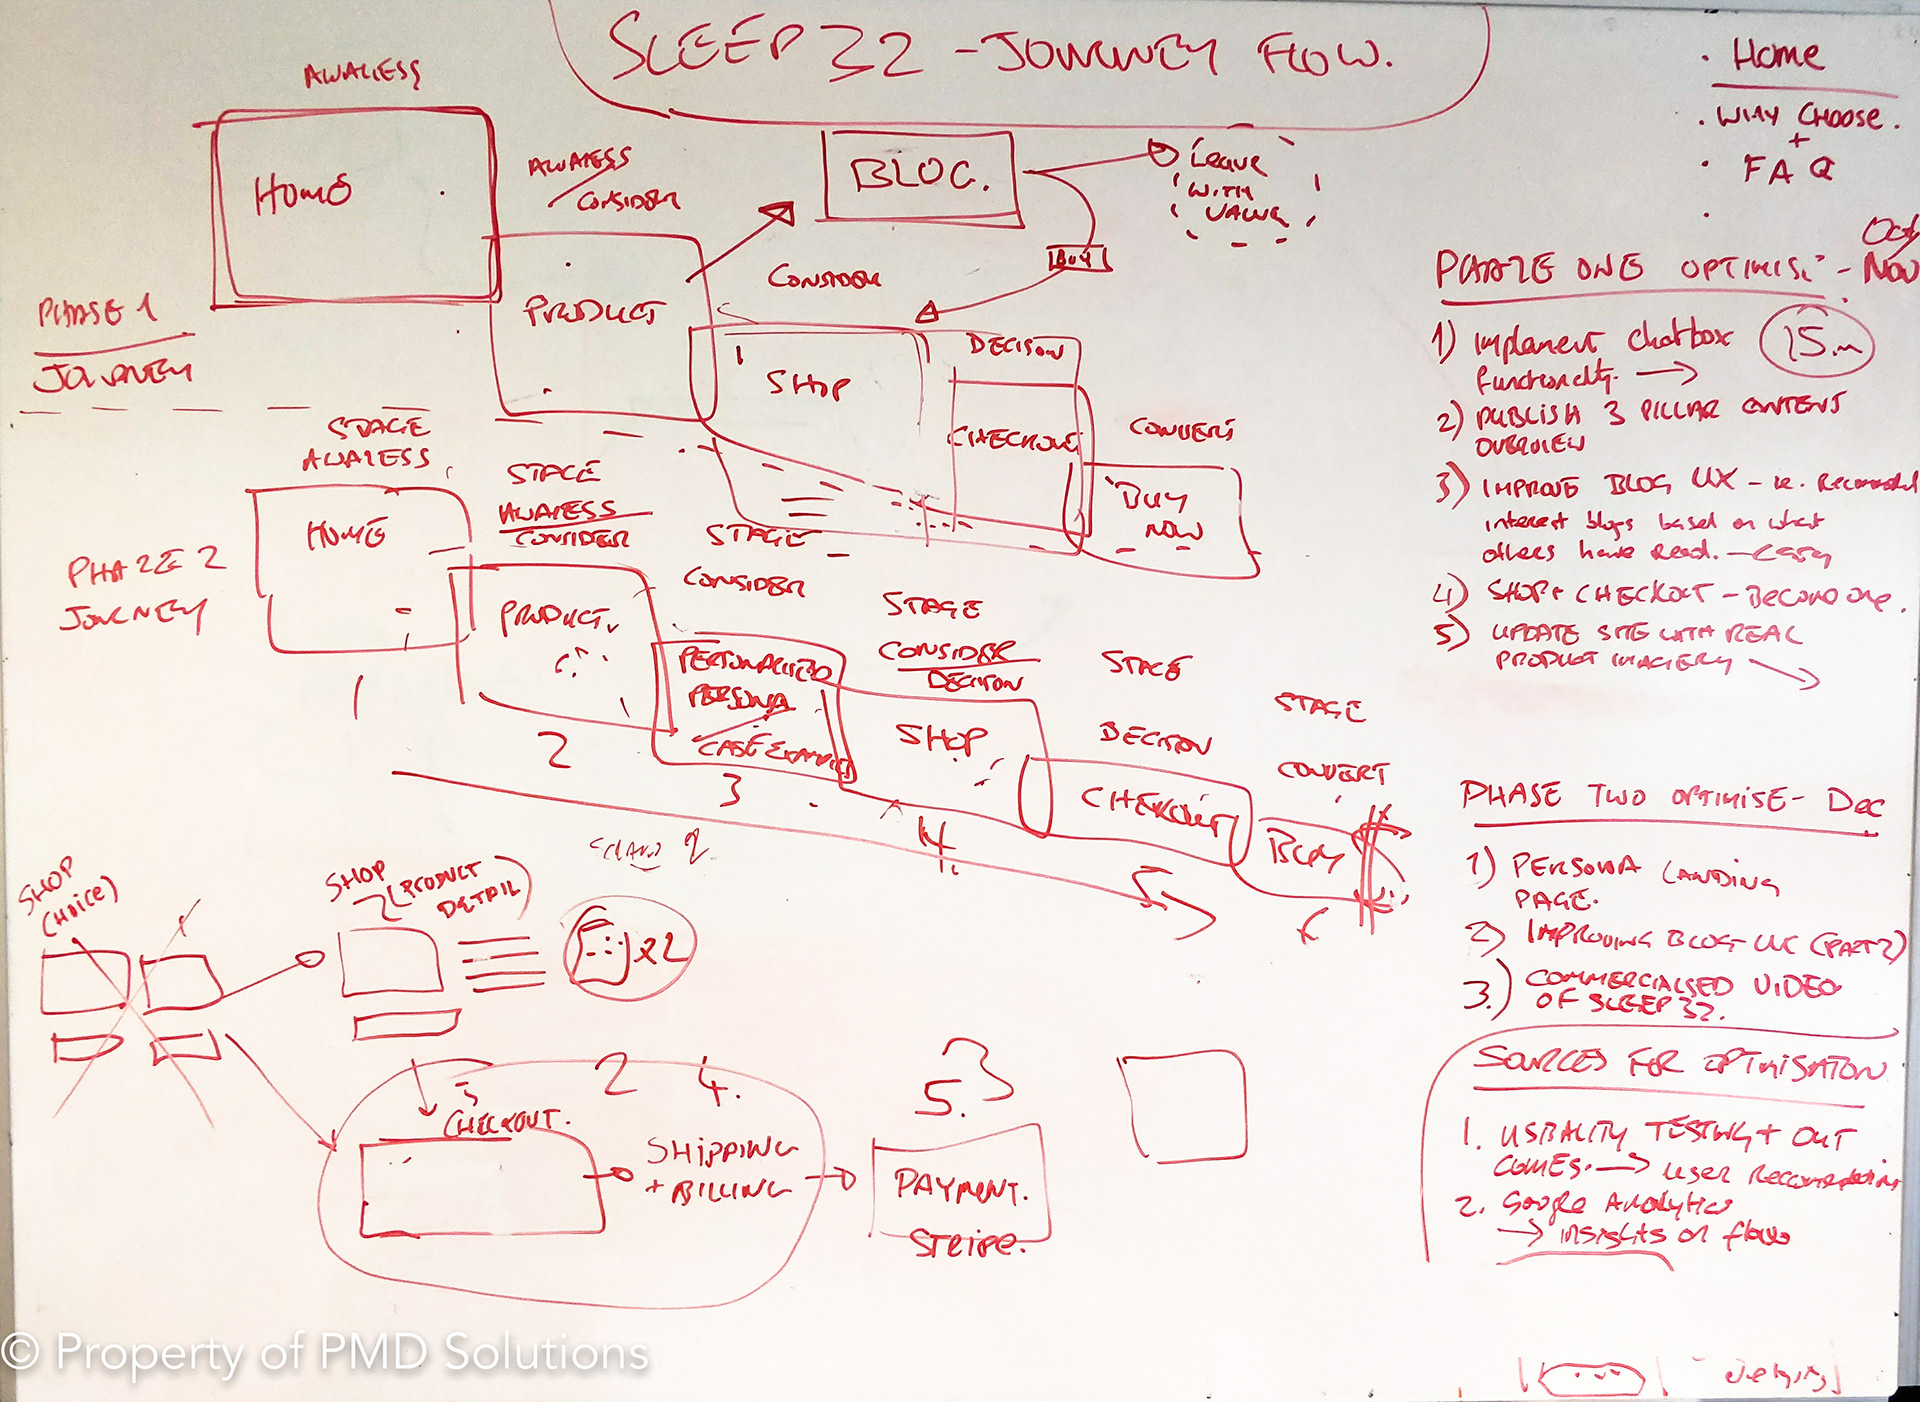 SLEEP 32 - JOURNEY FLOW.
AWARESS
HOME
AWARESS
CONSIDER
PRODUCT
BLOG.
Leave
WITH
VALUE
BUY
CONSIDER
SHOP
DECISON
CHECKOUT
CONVERT
BUY
NOW
PHASE 1
JOURNEY
STAGE
AWARESS
HOME
STAGE
AWARESS
CONSIDER
PRODUCT
STAGE
CONSIDER
PERSONALIZED
PERSONA
CASE EXAMPLES
STAGE
CONSIDER
DECISION
SHOP
STAGE
DECISION
CHECKOUT
STAGE
CONVERT
BUY
PHAZE 2
JOURNEY
1
2
3
4.
5
6
SHOP
(CHOICE)
SHOP
(PRODUCT
DETAIL)
x2
2
3
CHECKOUT.
2
4.
SHIPPING
+ BILLING
5.
3
PAYMENT.
STRIPE.
. Home
. WHY CHOOSE.
+
. FAQ
PHAZE ONE OPTIMISE - Nov
1) Implement chatbox 15.m
functionality. →
2) PUBLISH 3 PILLAR CONTENT
OVERVIEW
3) IMPROVE BLOG UX - ie. Recommended
interest blogs based on what
others have read. - Easy
4) SHOP + CHECKOUT - Become one.
5) UPDATE SITE WITH REAL
PRODUCT IMAGERY
PHASE TWO OPTIMISE - Dec
1) PERSONA LANDING
PAGE.
2) IMPROVING BLOG UX (PART 2)
3.) COMMERCIALISED VIDEO
OF SLEEP 32.
SOURCES FOR OPTIMISATION
1. USBALITY TESTING + OUT
COMES. → User Recommendations
2. Google Analytics
→ insights on flow
© Property of PMD Solutions